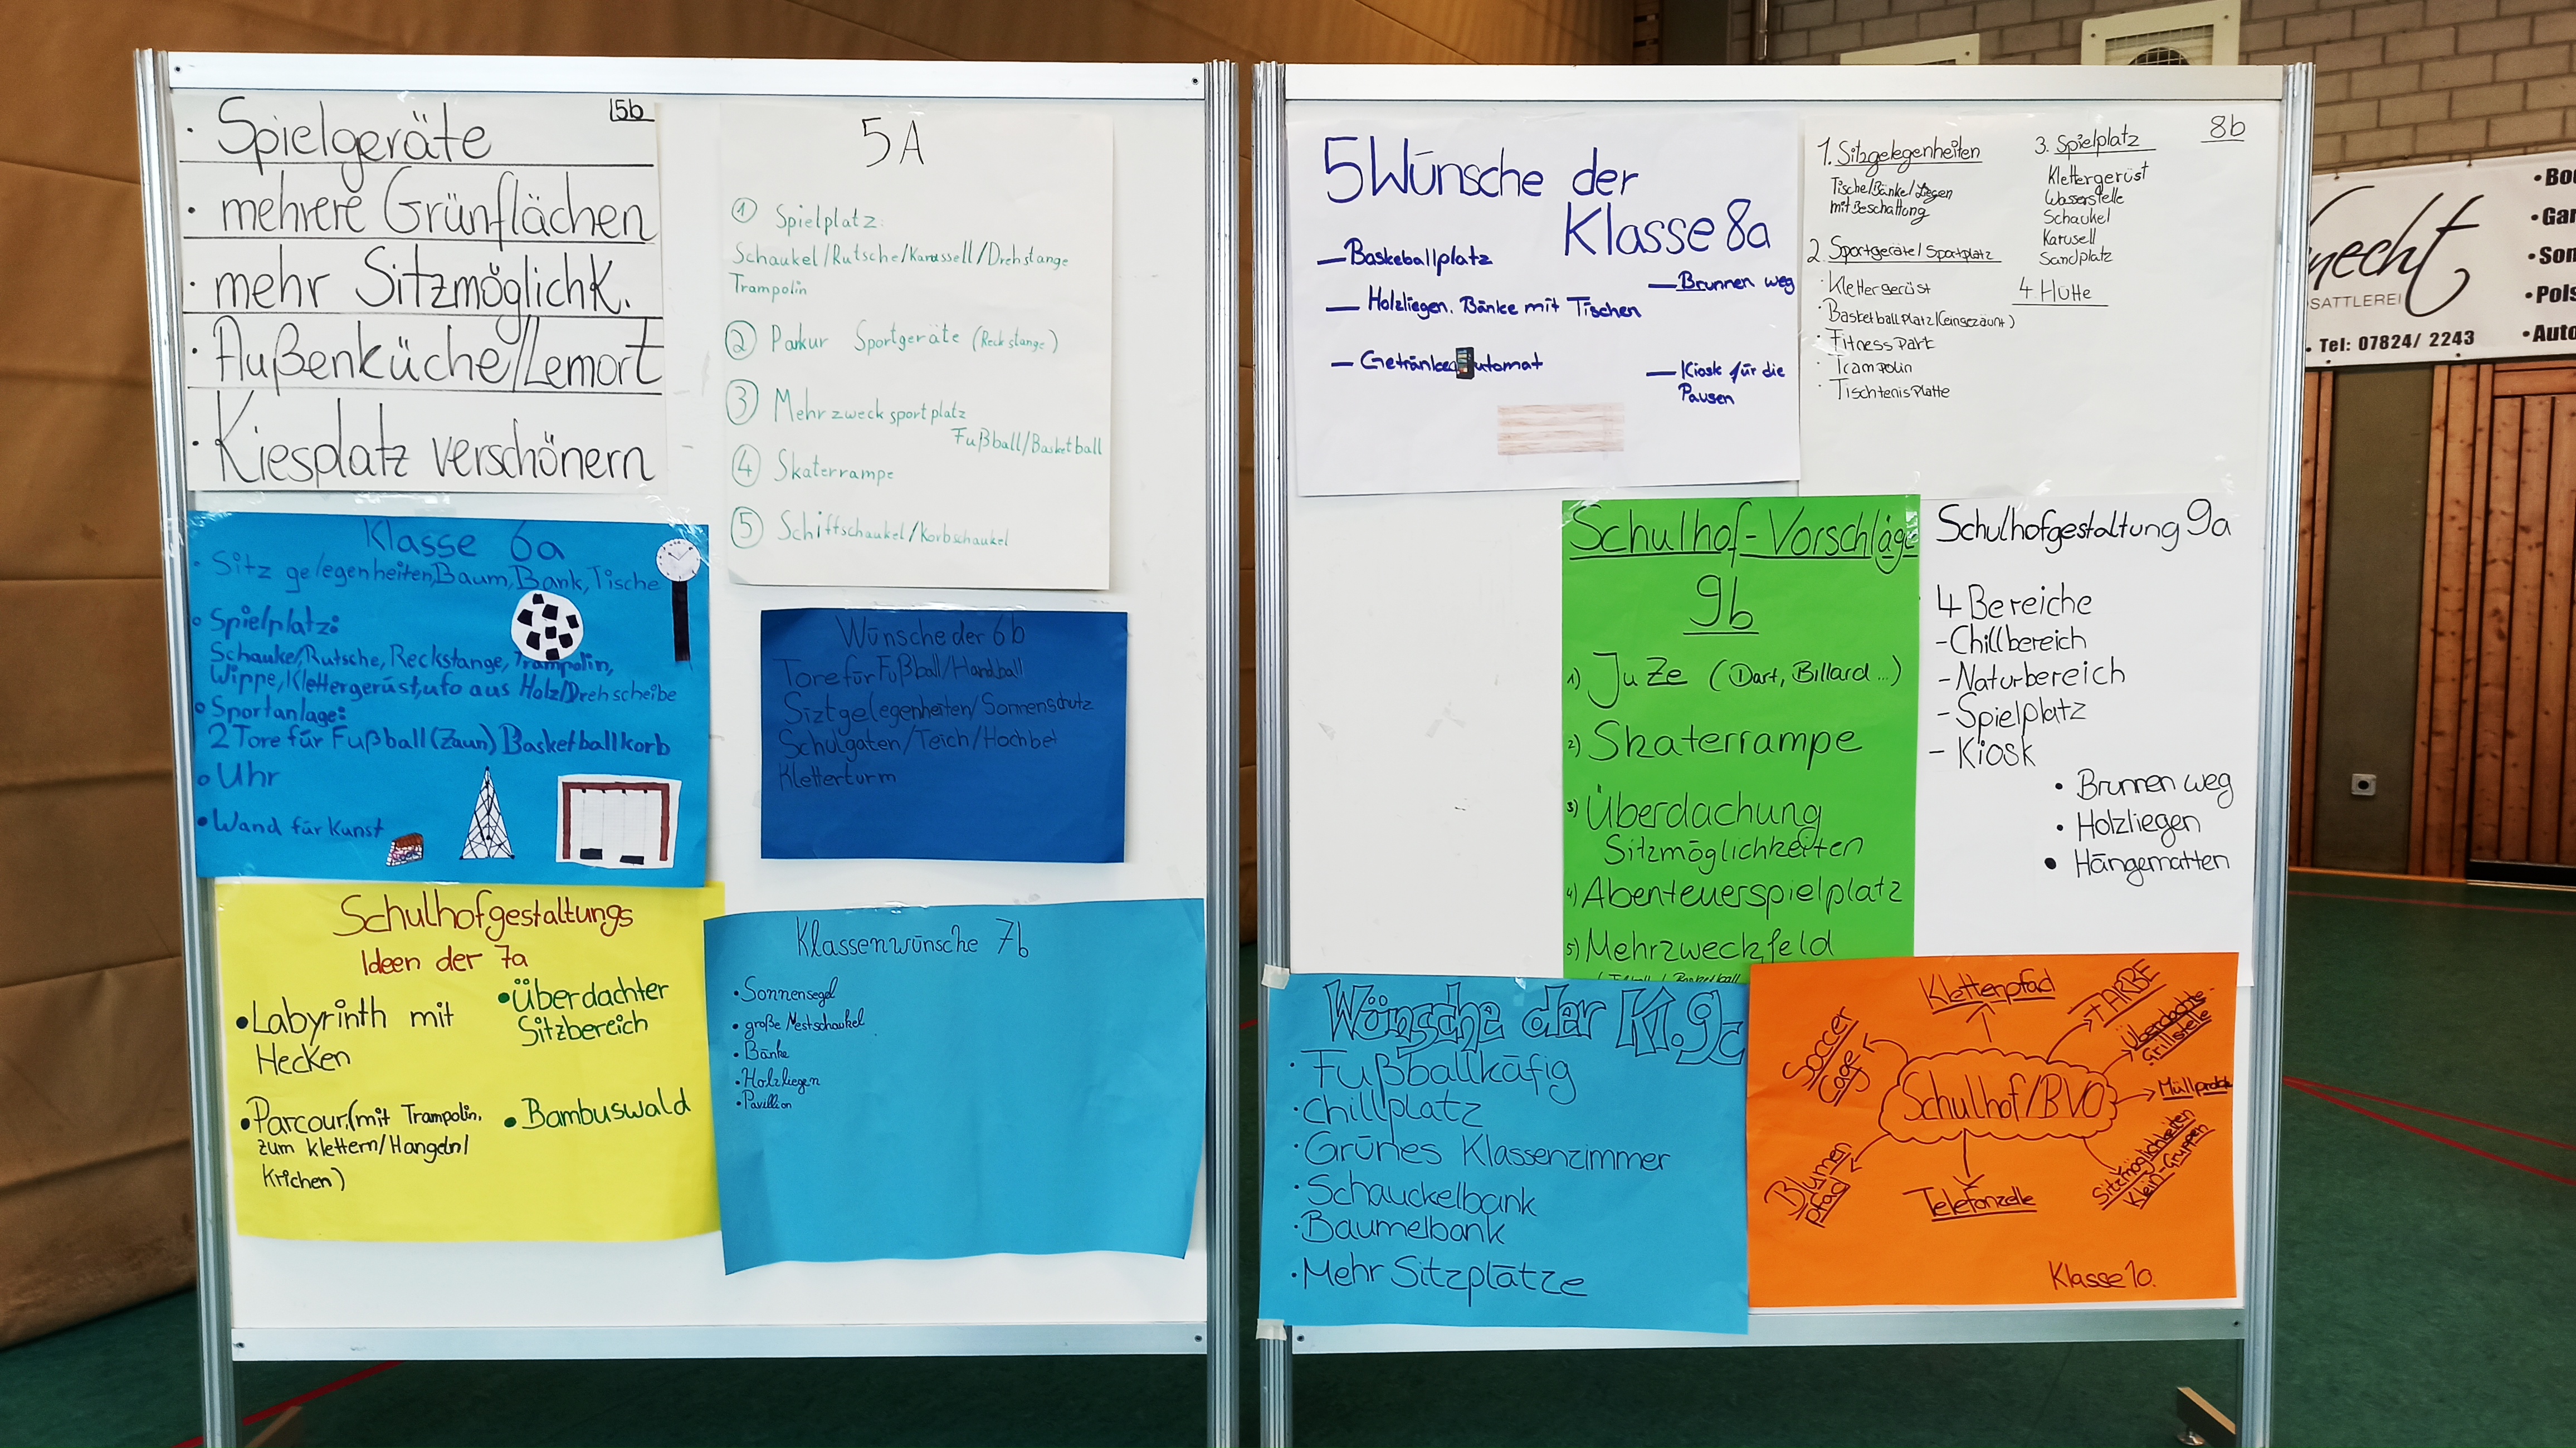 5b
· Spielgeräte
· mehrere Grünflächen
· mehr Sitzmöglichk.
· Außenküche/Lernort
· Kiesplatz verschönern
5A
① Spielplatz:
Schaukel/Rutsche/Karussell/Drehstange
Trampolin
② Parkur Sportgeräte (Reckstange)
③ Mehrzwecksportplatz
Fußball/Basketball
④ Skaterrampe
⑤ Schiffschaukel/Korbschaukel
Klasse 6a
• Sitzgelegenheiten, Baum, Bank, Tische
• Spielplatz:
Schaukel, Rutsche, Reckstange, Trampolin,
Wippe, Klettergerüst, ufo aus Holz/Drehscheibe
• Sportanlage:
2 Tore für Fußball (Zaun) Basketballkorb
• Uhr
• Wand für Kunst
Wünsche der 6b
Tore für Fußball/Handball
Siztgelegenheiten/Sonnenschutz
Schulgaten/Teich/Hochbet
Kletterturm
Schulhofgestaltungs
Ideen der 7a
• Labyrinth mit
Hecken
• Überdachter
Sitzbereich
• Parcour (mit Trampolin,
zum klettern/Hangeln/
Krichen)
• Bambuswald
Klassenwünsche 7b
• Sonnensegel
• große Nestschaukel
• Bänke
• Holzliegen
• Pavillion
5 Wünsche der
Klasse 8a
— Baskeballplatz
— Brunnen weg
— Holzliegen. Bänke mit Tischen
— Getränkeautomat
— Kiosk für die
Pausen
8b
1. Sitzgelegenheiten
Tische/Bänke/Liegen
mit Beschattung
2. Sportgeräte/Sportplatz
· Klettergerüst
· Basketballplatz (eingezäunt)
· Fitnesspark
· Trampolin
· Tischtenisplatte
3. Spielplatz
Klettergerüst
Wasserstelle
Schaukel
Karusell
Sandplatz
4 Hütte
Schulhof-Vorschläge
9b
1) JuZe (Dart, Billard...)
2) Skaterrampe
3) Überdachung
Sitzmöglichkeiten
4) Abenteuerspielplatz
5) Mehrzweckfeld
Schulhofgestaltung 9a
4 Bereiche
- Chillbereich
- Naturbereich
- Spielplatz
- Kiosk
• Brunnen weg
• Holzliegen
• Hängematten
Wünsche der Kl. 9c
· Fußballkäfig
· Chillplatz
· Grünes Klassenzimmer
· Schauckelbank
· Baumelbank
· Mehr Sitzplätze
Schulhof/BVO
Klettenpfad
FARBE
Überdachte-
Grillstelle
Sitzmöglichkeiten
Klein-Gruppen
Telefonzelle
Blumen
pfad
Soccer
Cage
Klasse 10.
necht
SATTLEREI
Tel: 07824/ 2243